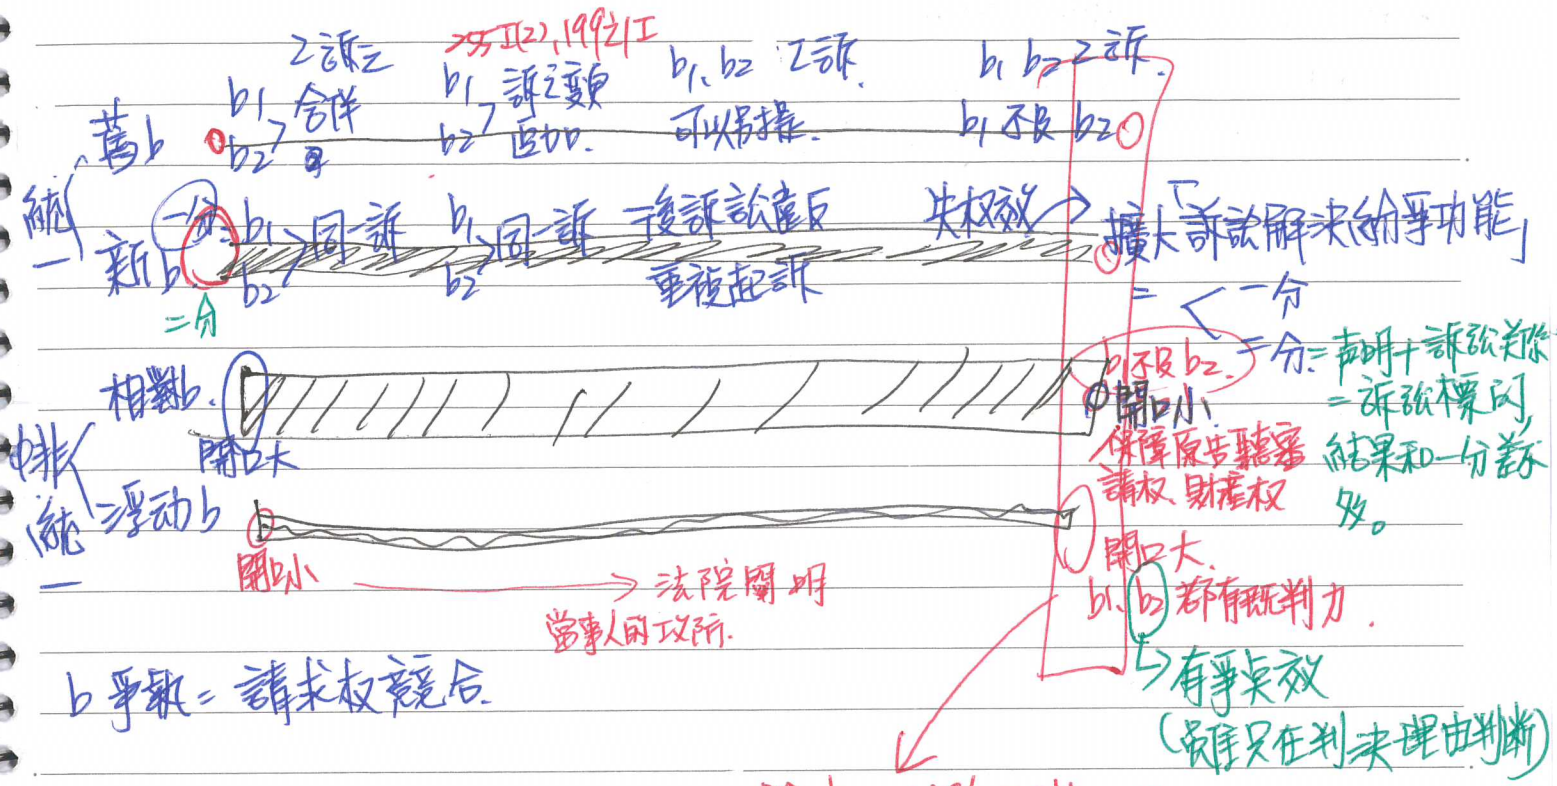 255I(2), 199之1I
2訴之
b1 b2 合併
b1 b2 訴之變更 追加.
b1、b2 2訴.
可以另提.
b1 b2 2訴.
b1 不及 b2
舊b
統一
新b
一分
b1 b2 同一訴
b1 b2 同一訴
後訴訟違反
重複起訴
失权效
擴大「訴訟解決紛爭功能」
= 一分
二分
二分:声明+訴訟关係
=訴訟標的,
結果和一分差不
多。
相對b.
開口大
b1不及b2.
開口小
保障原告聽審
請权、財產权
非統一
浮动b
開口小
法院闡明
當事人的攻防.
開口大.
b1、b2 都有既判力.
有爭点效
(雖只在判決理由判斷)
b 爭執=請求权競合.